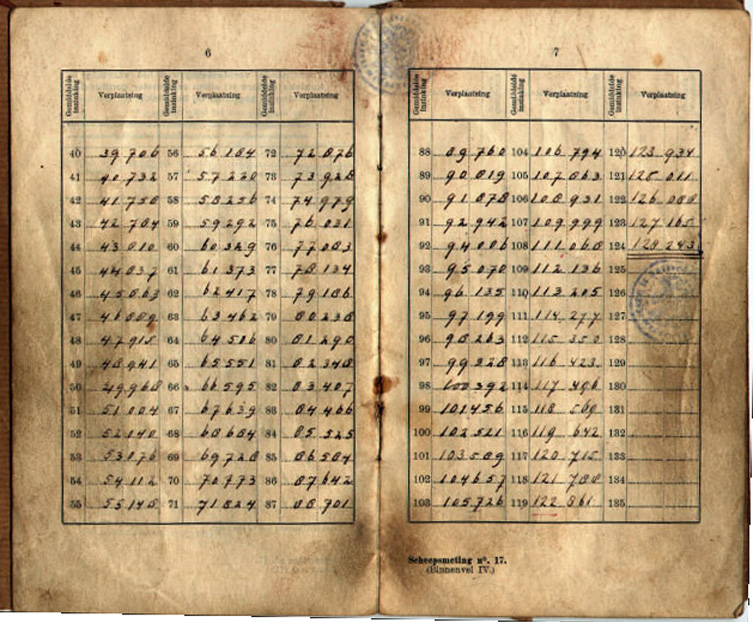 6
Gemiddelde inzinking Verplaatsing Gemiddelde inzinking Verplaatsing Gemiddelde inzinking Verplaatsing
40 39 706 56 56 184 72 72 876
41 40 732 57 57 220 73 73 928
42 41 758 58 58 256 74 74 979
43 42 784 59 59 292 75 76 031
44 43 810 60 60 329 76 77 083
45 44 837 61 61 373 77 78 134
46 45 863 62 62 417 78 79 186
47 46 889 63 63 462 79 80 238
48 47 915 64 64 506 80 81 290
49 48 941 65 65 551 81 82 348
50 49 968 66 66 595 82 83 407
51 51 004 67 67 639 83 84 466
52 52 040 68 68 684 84 85 525
53 53 076 69 69 728 85 86 584
54 54 112 70 70 773 86 87 642
55 55 148 71 71 824 87 88 701
7
Gemiddelde inzinking Verplaatsing Gemiddelde inzinking Verplaatsing Gemiddelde inzinking Verplaatsing
88 89 760 104 106 794 120 123 934
89 90 819 105 107 863 121 125 011
90 91 878 106 108 931 122 126 088
91 92 942 107 109 999 123 127 165
92 94 006 108 111 068 124 128 243
93 95 070 109 112 136 125
94 96 135 110 113 205 126
95 97 199 111 114 277 127
96 98 263 112 115 350 128
97 99 328 113 116 423 129
98 100 392 114 117 496 130
99 101 456 115 118 569 131
100 102 521 116 119 642 132
101 103 589 117 120 715 133
102 104 657 118 121 788 134
103 105 726 119 122 861 135
Scheepsmeting nº. 17.
(Binnenvel IV.)